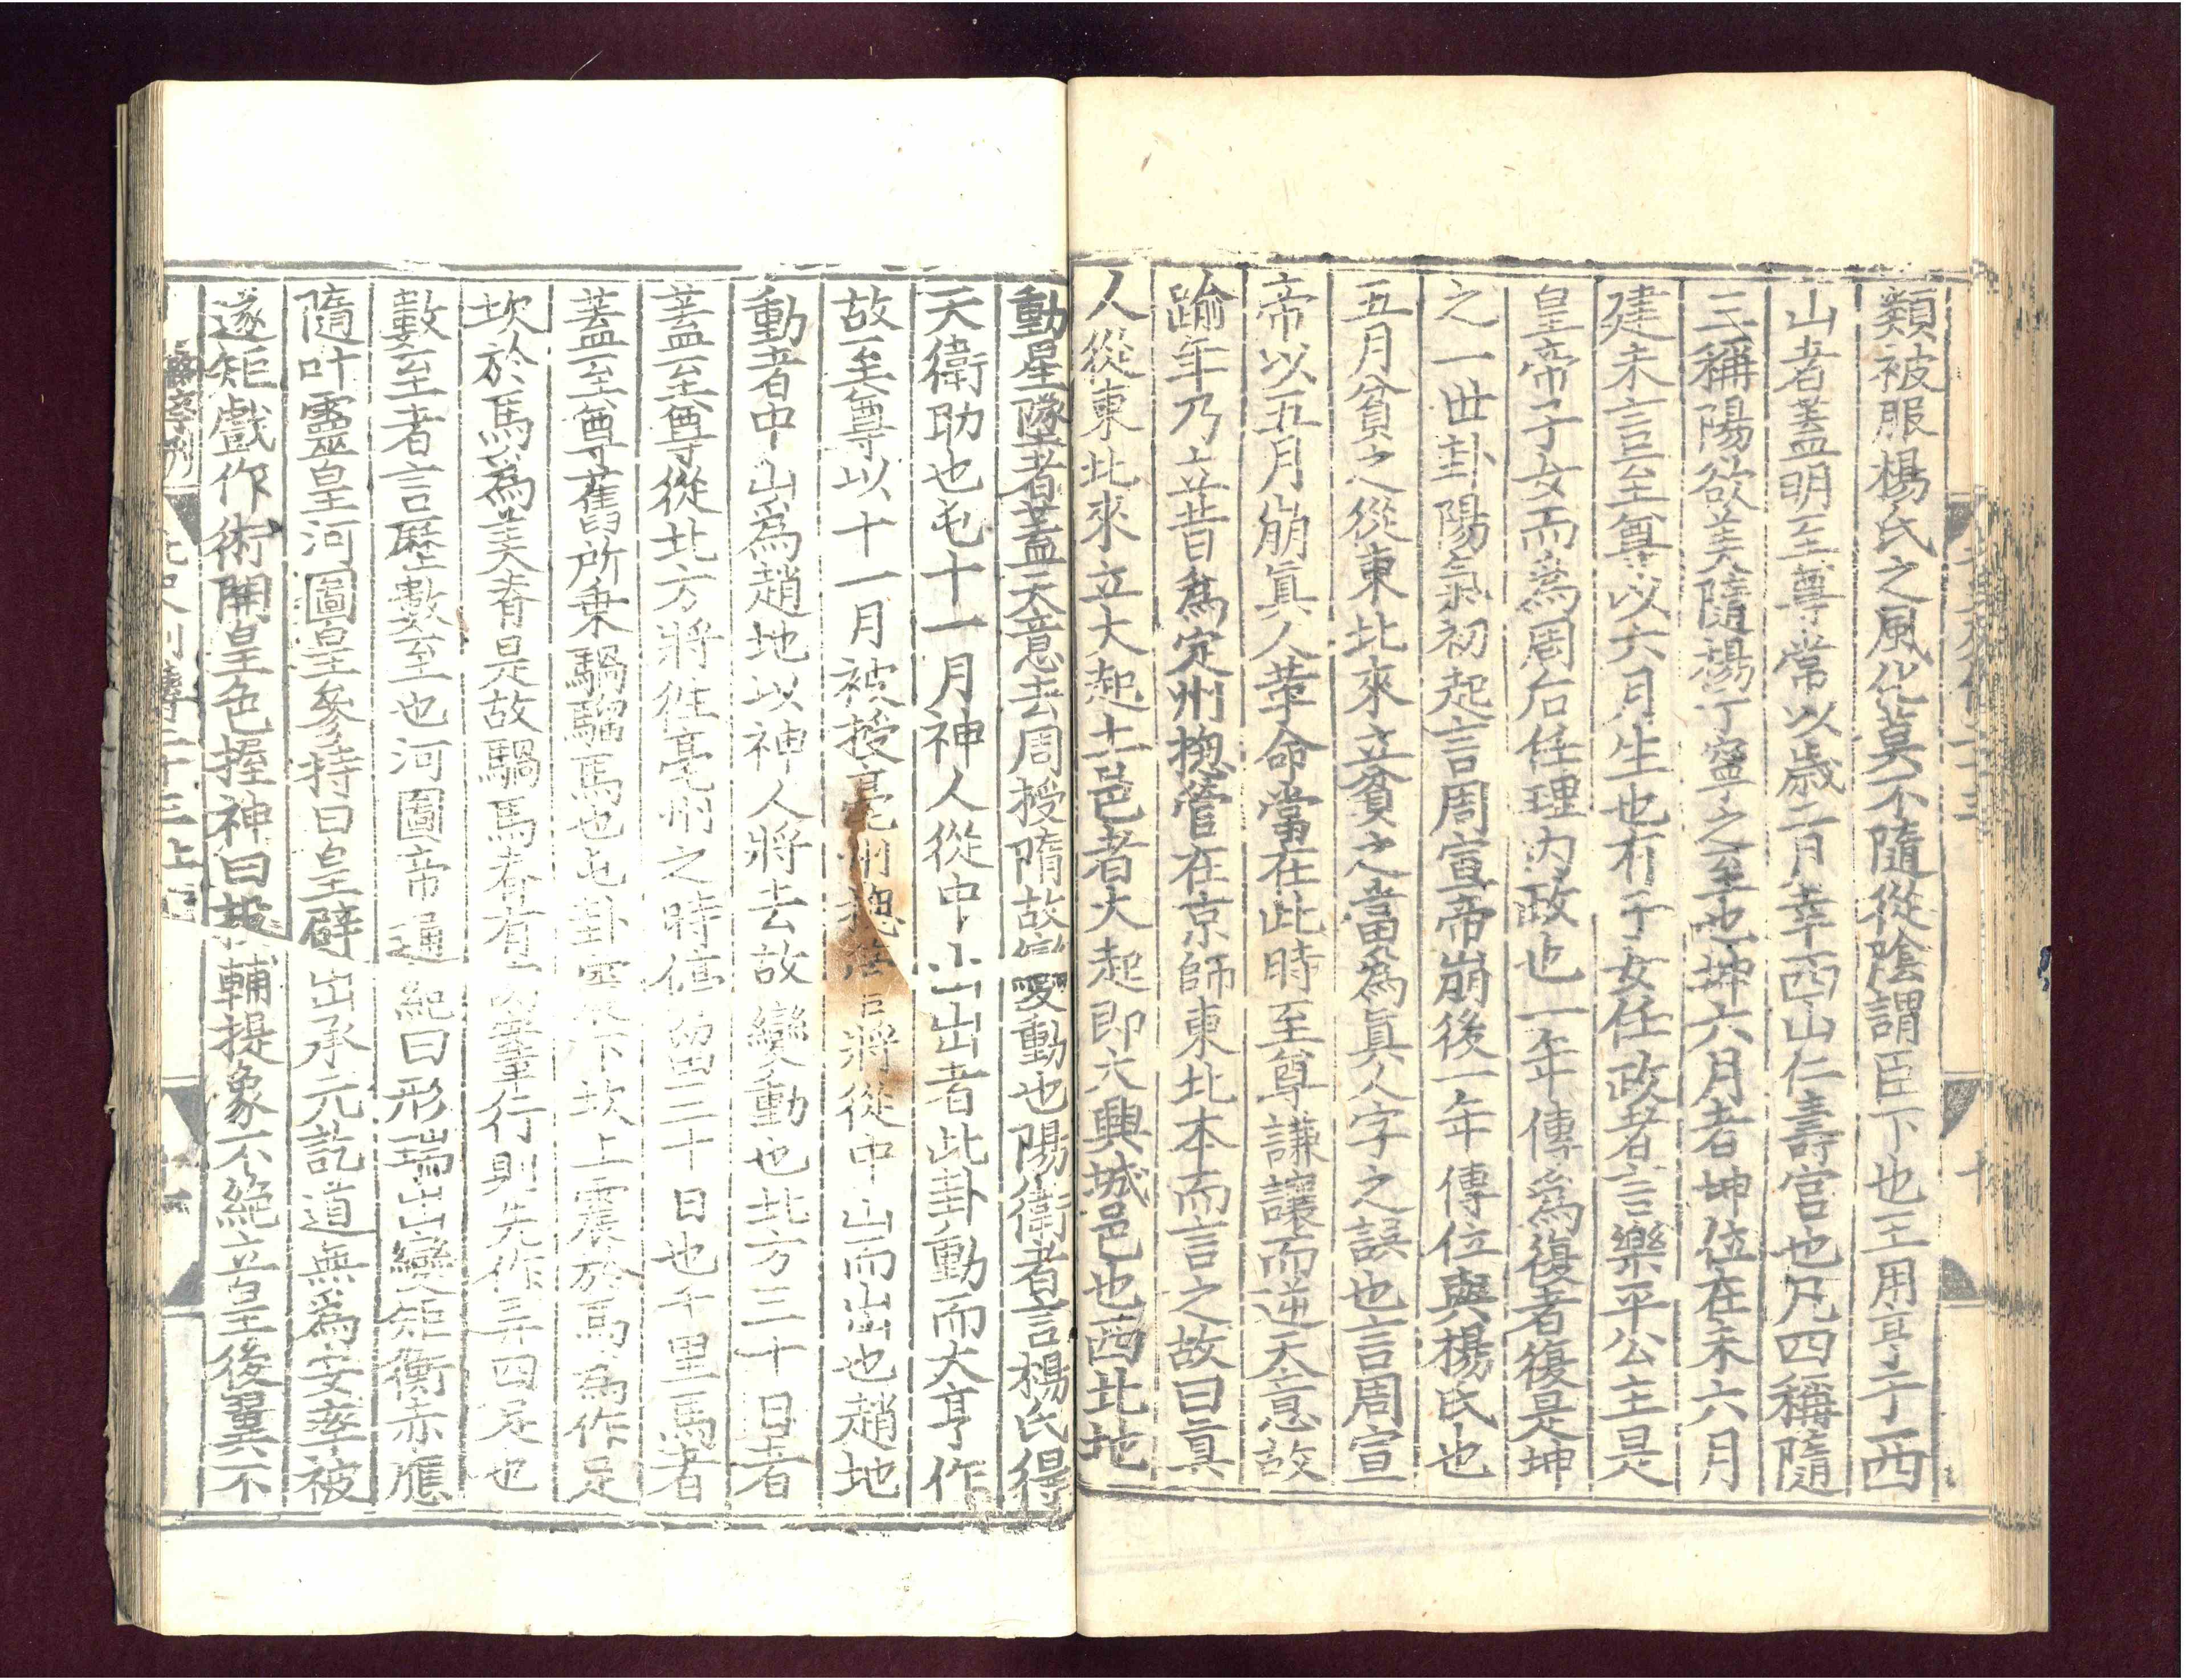 類被服楊氏之風化莫不隨從陰謂臣下也王用亨于西
山者蓋明至尊常以歲二月幸西山仁壽宮也凡四稱隨
三稱陽欲美隨楊丁寧之至也坤六月者坤位在未六月
建未言至尊以六月生也有子女任政者言樂平公主是
皇帝子女而爲周后任理內政也一年傳爲復者復是坤
之一世卦陽氣初起言周宣帝崩後一年傳位與楊氏也
五月貧之從東北來立貧之當爲眞人字之誤也言周宣
帝以五月崩眞人革命當在此時至尊謙讓而逆天意故
踰年乃立昔爲定州揔管在京師東北本而言之故曰眞
人從東北來立大起土邑者大起即大興城邑也西北地
動星墜者蓋天意去周授隋故變動也陽衛者言楊氏得
天衛助也屯十一月神人從中山出者此卦動而大亨作
故至尊以十一月被授亳州揔管將從中山而出也趙地
動者中山爲趙地以神人將去故變動也北方三十日者
蓋至尊從北方將往亳州之時停留三十日也千里馬者
蓋至尊舊所乘騧騮馬也屯卦震下坎上震於馬爲作足
坎於馬爲美脊是故騧馬脊有肉鞍行則先作弄四足也
數至者言歷數至也河圖帝通紀曰形瑞出變矩衡赤應
隨叶靈皇河圖皇參持曰皇辟出承元訖道無爲安率被
遂矩戲作術開皇色握神日投輔提象不絶立皇後翼不
三上